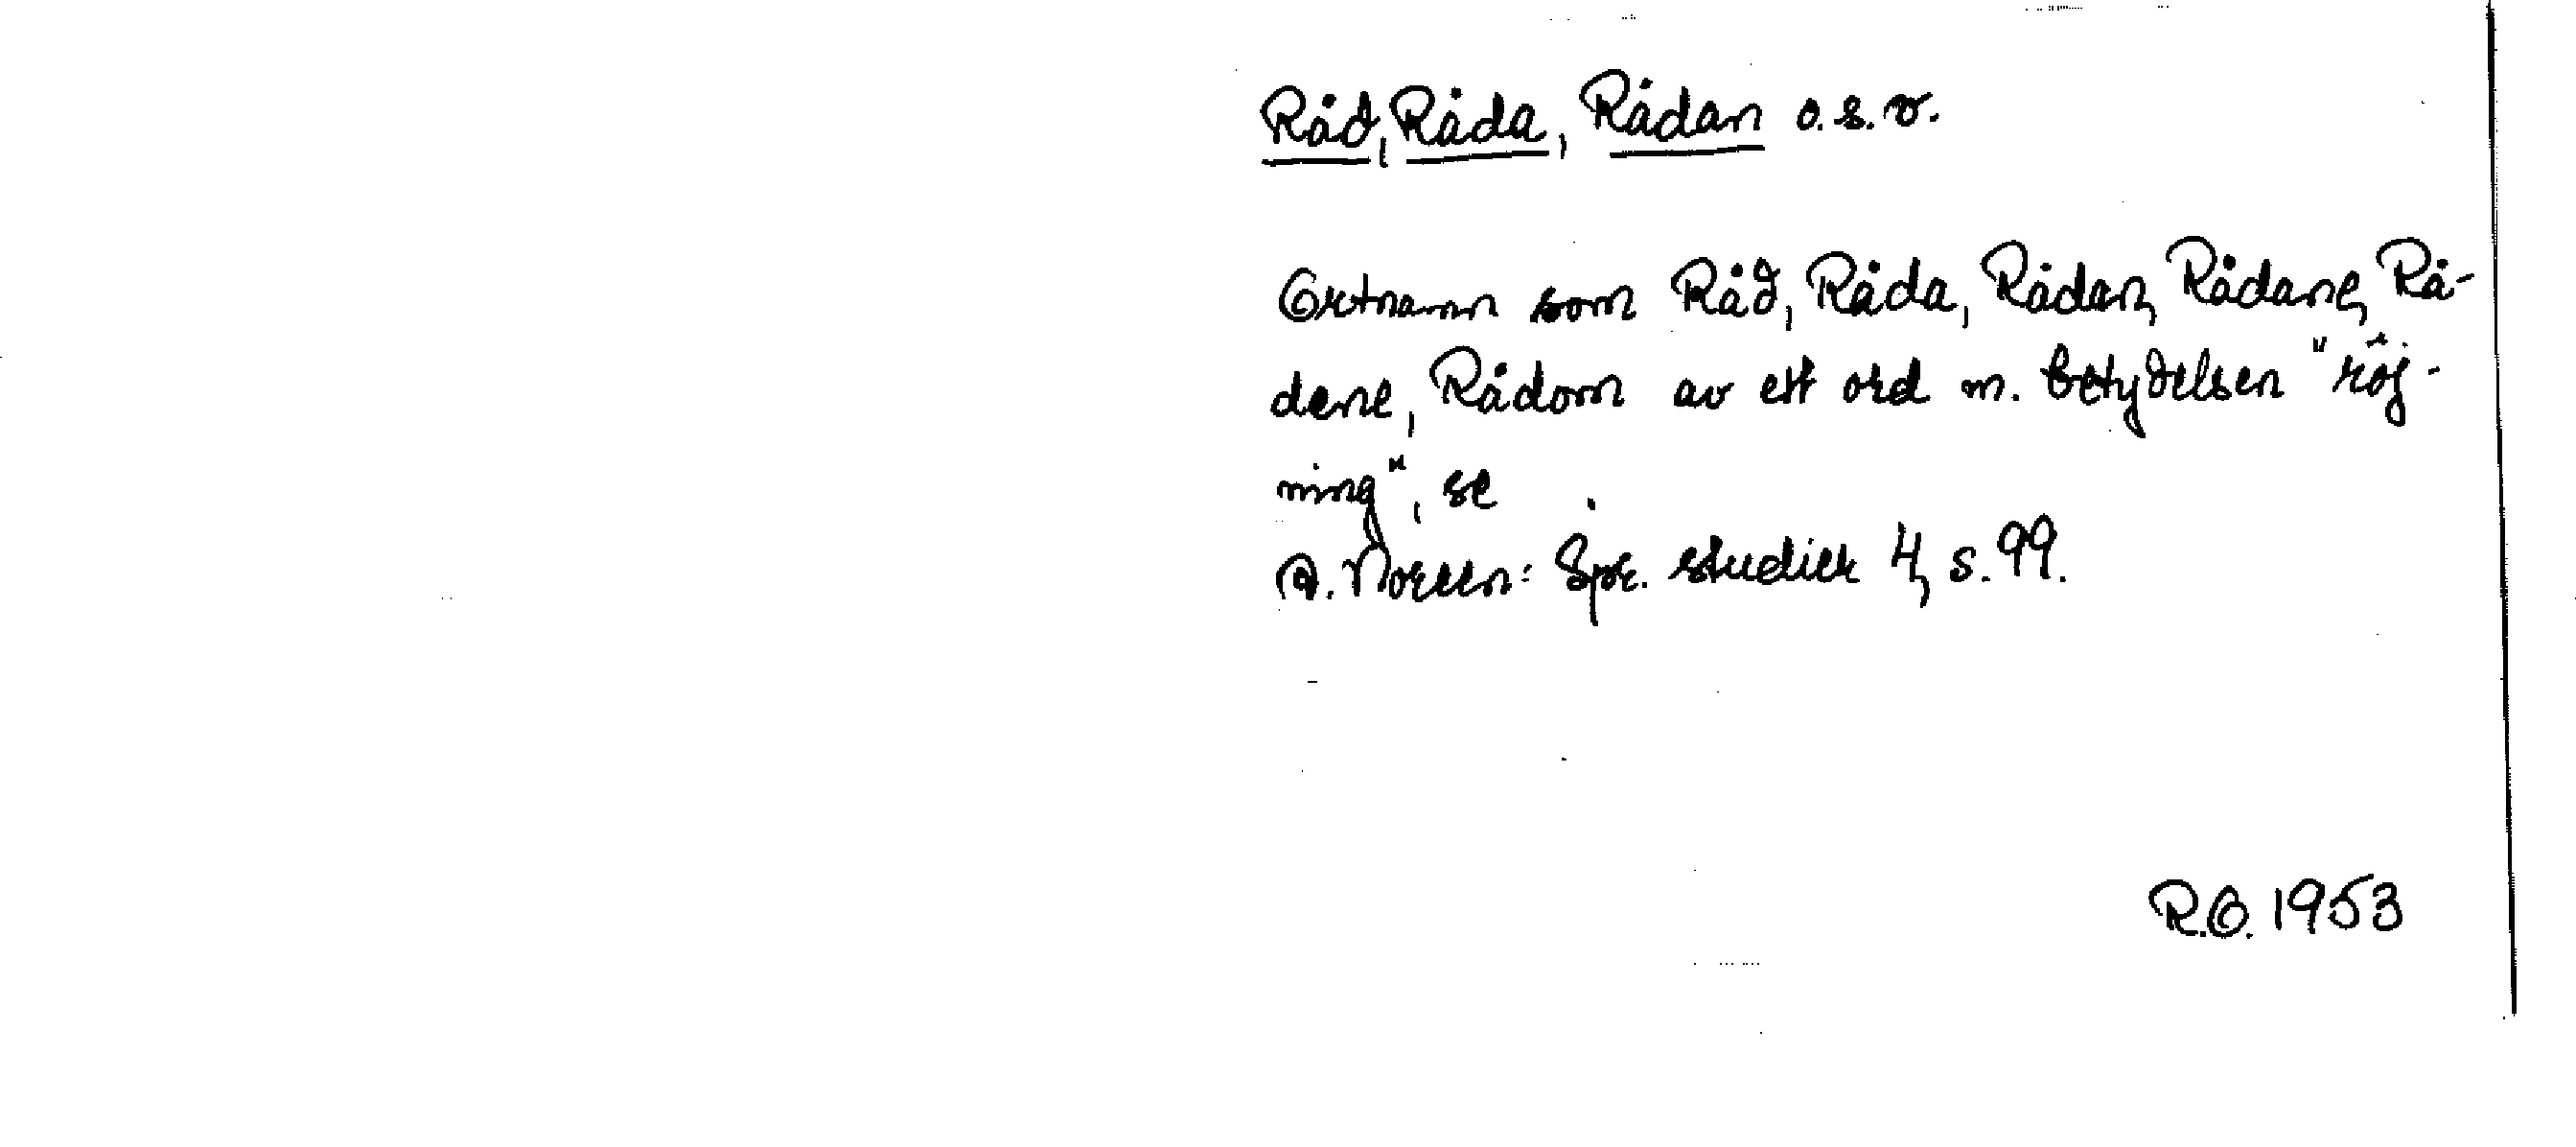 Råd, Råda, Rådan o.s.v.
Ortnamn som Råd, Råda, Rådan, Rådane, Rå-
dene, Rådom av ett ord m. betydelsen "röj-
ning", se
A. Noreen: Spr. studier 4, s. 99.
R.O. 1953